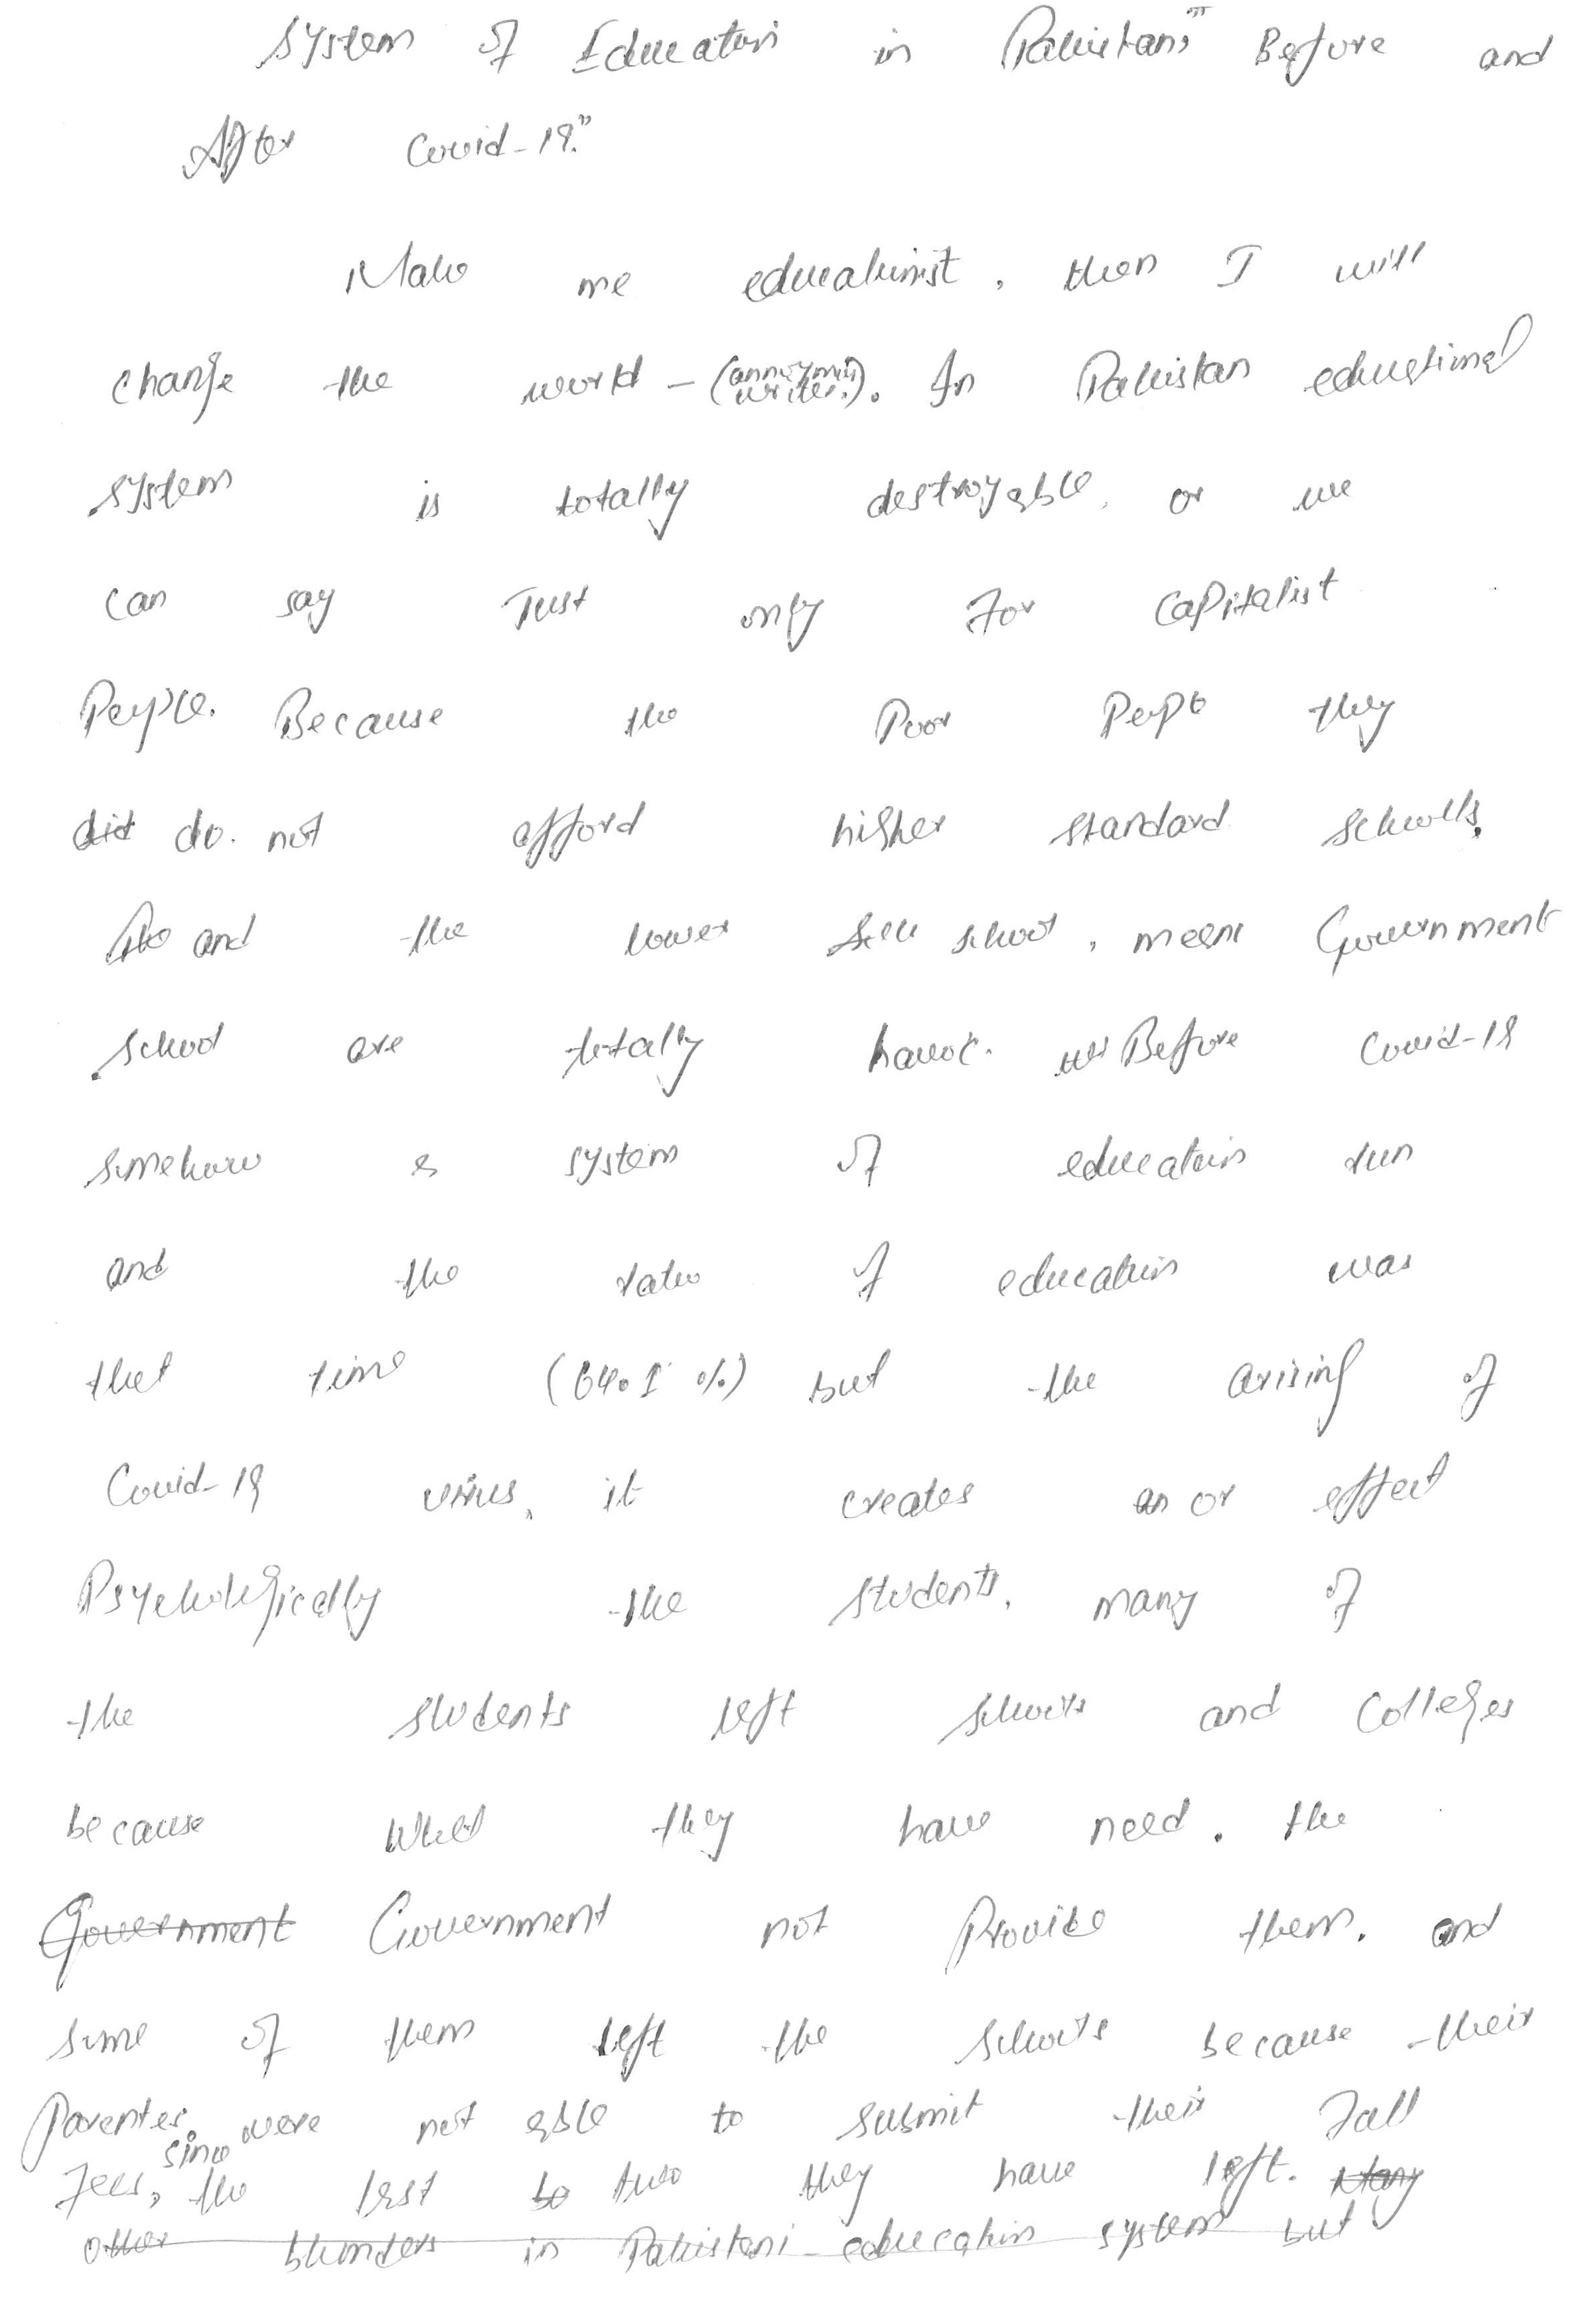 System of Education in Pakistan," Before and
After Covid-19."
Make me educationist, then I will
change the world - (annoymus writer). In Pakistan educational
system is totally destroyable, or we
can say Just only for capitalist
People. Because the Poor People they
did do not afford higher standard schools,
and the lower school, means Government
school are totally havoc. Before Covid-19
somehow system of education run
and the ratio of education was
that time (64.1 %) but the arising of
Covid-19 virus, it creates an or effect
Psychologically the students, many of
the students left schools and colleges
because what they have need. the
Government Government not Provide them. and
some of them left the schools because their
Parentes were not able to submit their Fall
Fees, since the last to two they have left. Many
other blunders in Pakistani education system but